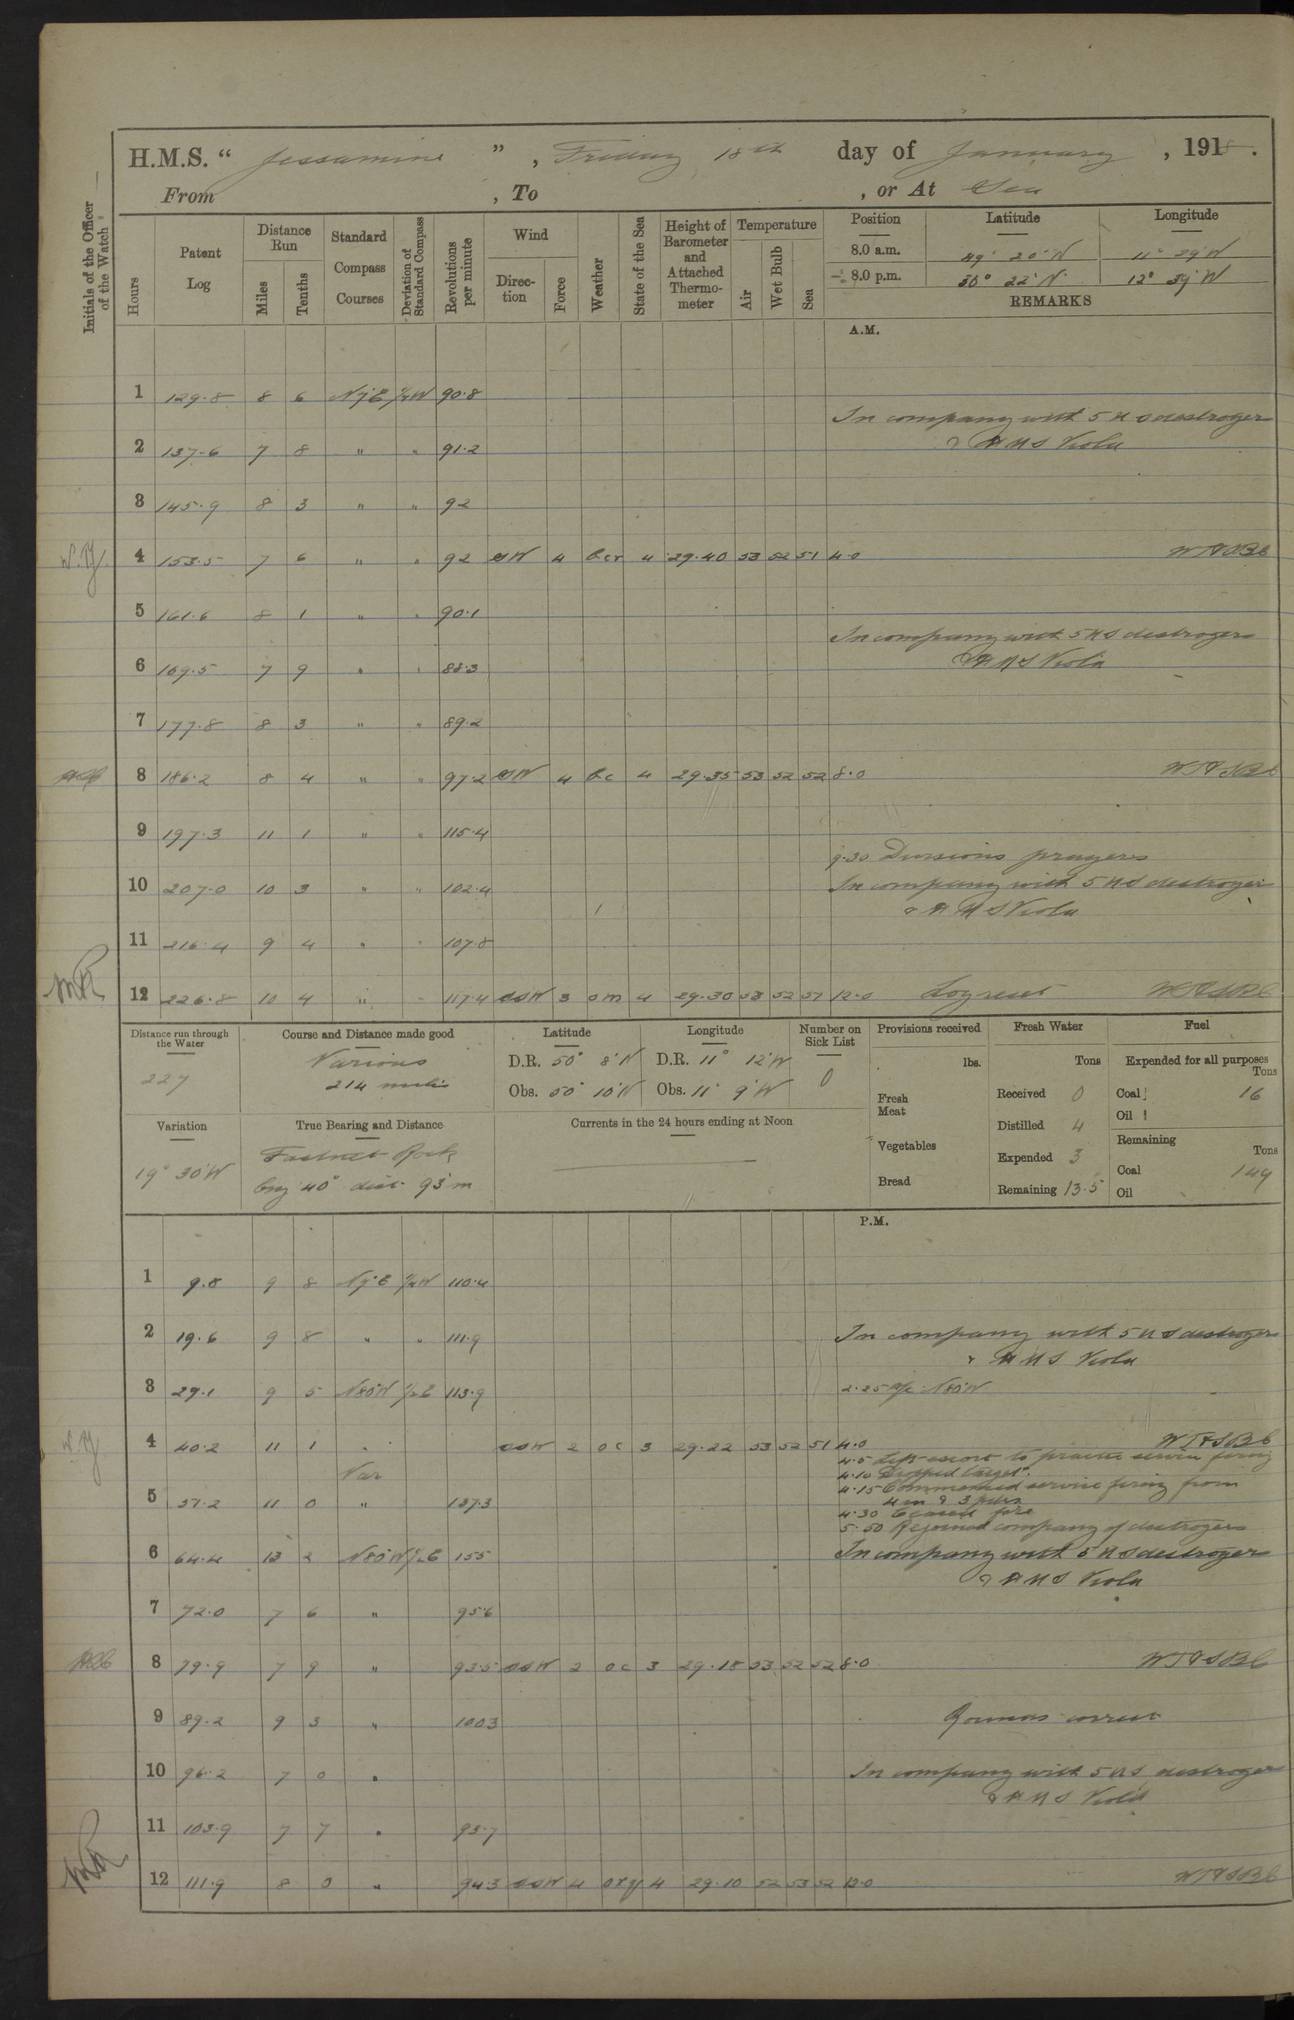 H.M.S. “ Jessamine ” , Friday 18th day of January , 1918 .
From , To , or At Sea
Initials of the Officer of the Watch
Hours
Patent Log
Distance Run
Miles
Tenths
Standard Compass Courses
Deviation of Standard Compass
Revolutions per minute
Wind
Direction
Force
Weather
State of the Sea
Height of Barometer and Attached Thermometer
Temperature
Air
Wet Bulb
Sea
Position Latitude Longitude
8.0 a.m. 49° 20' N 11° 29' W
8.0 p.m. 22' N 12° 39' W
REMARKS
A.M.
1 129.8 8 6 N7E ½W 90.8
In company with 5 US destroyer
2 137.6 7 8 " " 91.2
& HMS Viola
3 145.9 8 3 " " 92
4 153.5 7 6 " " 92 SW 4 bcr 4 29.40 53 52 51 4.0
5 161.6 8 1 " " 90.1
In company with 5 US destroyers
6 169.5 7 9 " " 88.3
& HMS Viola
7 177.8 8 3 " " 89.2
8 186.2 8 4 " " 97.2 SW 4 bc 4 29.35 53 52 52 8.0
9 197.3 11 1 " " 115.4
9.30 Divisions prayers
10 207.0 10 3 " " 102.4
In company with 5 US destroyer
& HMS Viola
11 216.4 9 4 " " 107.8
12 226.8 10 4 " " 117.4 SSW 3 om 4 29.30 53 52 51 12.0 Log reset
Distance run through the Water
227
Course and Distance made good
Various
214 miles
Latitude
D.R. 50° 8' N
Obs. 50° 10' N
Longitude
D.R. 11° 12' W
Obs. 11° 9' W
Number on Sick List
0
Provisions received
lbs.
Fresh Meat
Vegetables
Bread
Fresh Water
Tons
Received 0
Distilled 4
Expended 3
Remaining 13.5
Fuel
Expended for all purposes
Tons
Coal 16
Oil
Remaining
Tons
Coal 149
Oil
Variation
19° 30' W
True Bearing and Distance
Fastnet Rock
brg 40° dist 93 m
Currents in the 24 hours ending at Noon
P.M.
1 9.8 9 8 N7E ½W 110.4
2 19.6 9 8 " " 111.9
In company with 5 US destroyers
& HMS Viola
3 29.1 9 5 N80W ½E 113.9
2.25 A/c N80W
4 40.2 11 1 " SSW 2 oc 3 29.22 53 52 51 4.0
4.5 Left escort to practice service firing
4.10 Dropped target.
Var
4.15 Commenced service firing from
5 51.2 11 0 " 137.3
4 in & 3 pdrs
4.30 Ceased fire
5.50 Rejoined company of destroyers
6 64.4 13 2 N80W ½E 155
In company with 5 US destroyer
& HMS Viola
7 72.0 7 6 " 95.6
8 79.9 7 9 " 93.5 SSW 2 oc 3 29.18 53 52 52 8.0
9 89.2 9 3 " 100.3
Rounds correct
10 96.2 7 0 "
In company with 5 US destroyer
& HMS Viola
11 103.9 7 7 " 93.7
12 111.9 8 0 " 94.3 SSW 4 4 29.10 52 53 52 12.0